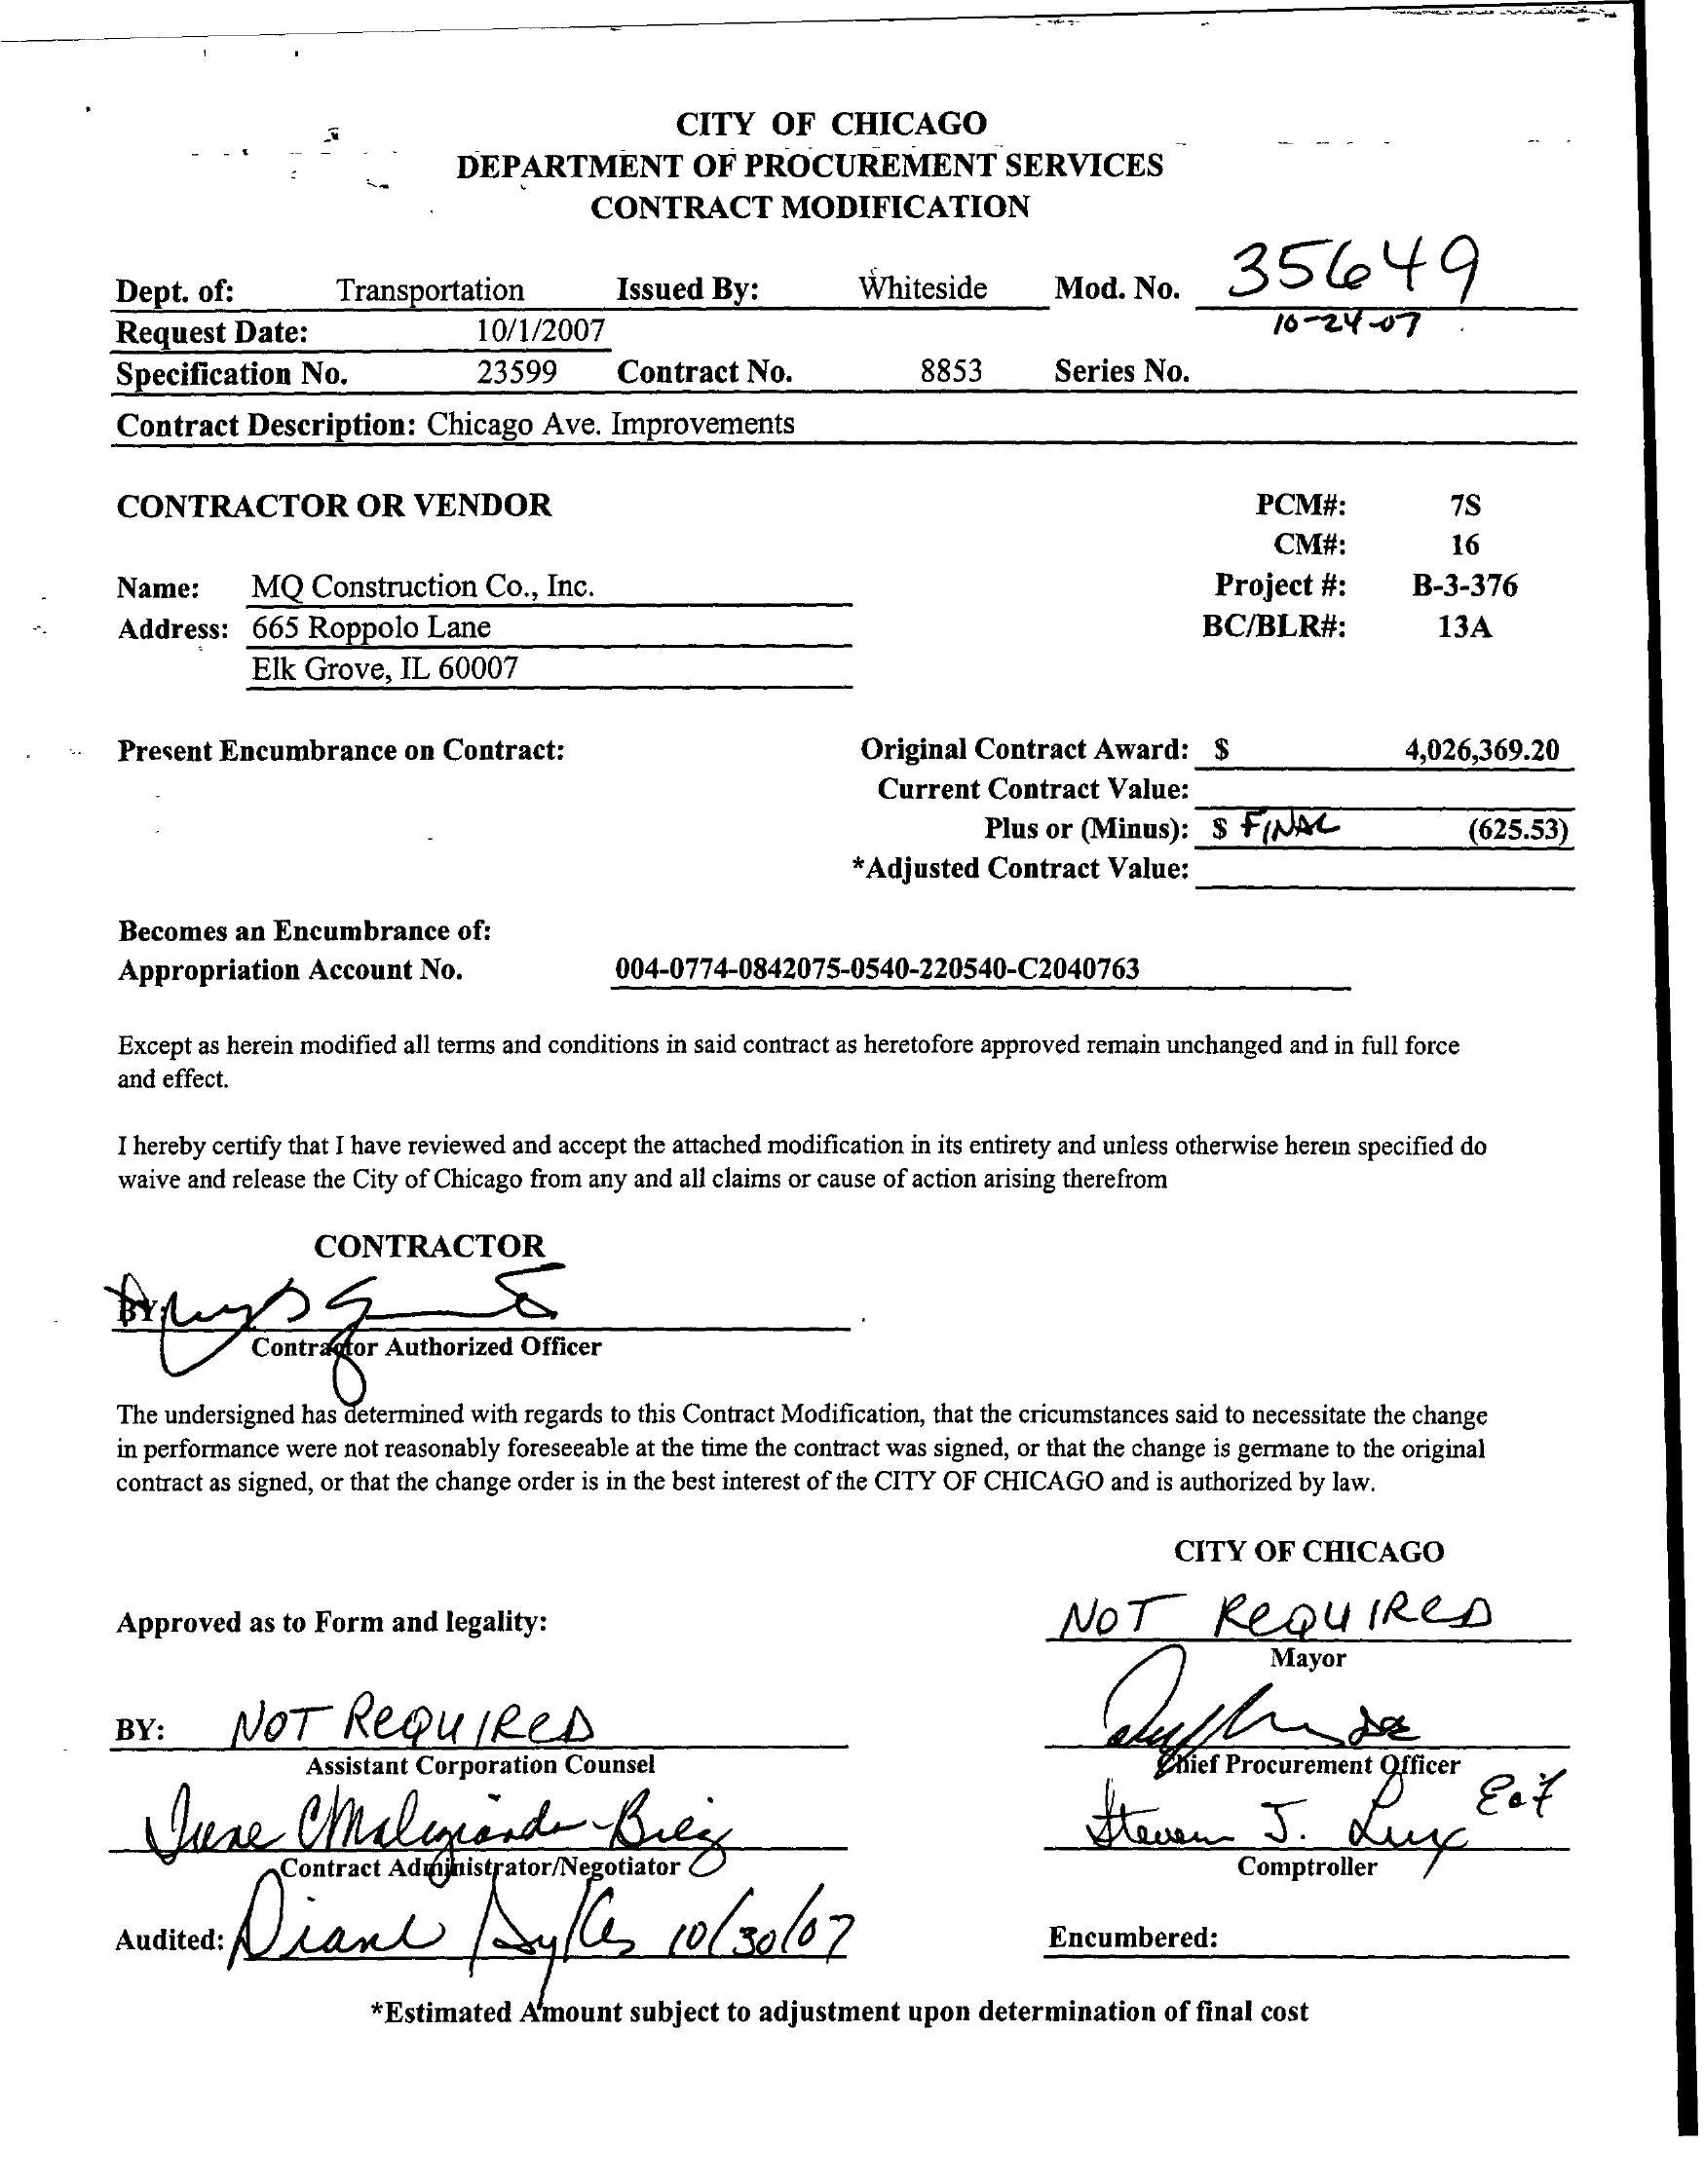 CITY OF CHICAGO
DEPARTMENT OF PROCUREMENT SERVICES
CONTRACT MODIFICATION
Dept. of: Transportation Issued By: Whiteside Mod. No. 35649
Request Date: 10/1/2007 10-24-07
Specification No. 23599 Contract No. 8853 Series No.
Contract Description: Chicago Ave. Improvements
CONTRACTOR OR VENDOR PCM#: 7S
CM#: 16
Name: MQ Construction Co., Inc. Project #: B-3-376
Address: 665 Roppolo Lane BC/BLR#: 13A
Elk Grove, IL 60007
Present Encumbrance on Contract: Original Contract Award: $ 4,026,369.20
Current Contract Value:
Plus or (Minus): $ FINAL (625.53)
*Adjusted Contract Value:
Becomes an Encumbrance of:
Appropriation Account No. 004-0774-0842075-0540-220540-C2040763
Except as herein modified all terms and conditions in said contract as heretofore approved remain unchanged and in full force
and effect.
I hereby certify that I have reviewed and accept the attached modification in its entirety and unless otherwise herein specified do
waive and release the City of Chicago from any and all claims or cause of action arising therefrom
CONTRACTOR
BY:
Contractor Authorized Officer
The undersigned has determined with regards to this Contract Modification, that the cricumstances said to necessitate the change
in performance were not reasonably foreseeable at the time the contract was signed, or that the change is germane to the original
contract as signed, or that the change order is in the best interest of the CITY OF CHICAGO and is authorized by law.
CITY OF CHICAGO
Approved as to Form and legality: NOT REQUIRED
Mayor
BY: NOT REQUIRED
Assistant Corporation Counsel Chief Procurement Officer
Steven J. Lux
Contract Administrator/Negotiator Comptroller
Audited: Diane Sykes 10/30/07 Encumbered:
*Estimated Amount subject to adjustment upon determination of final cost